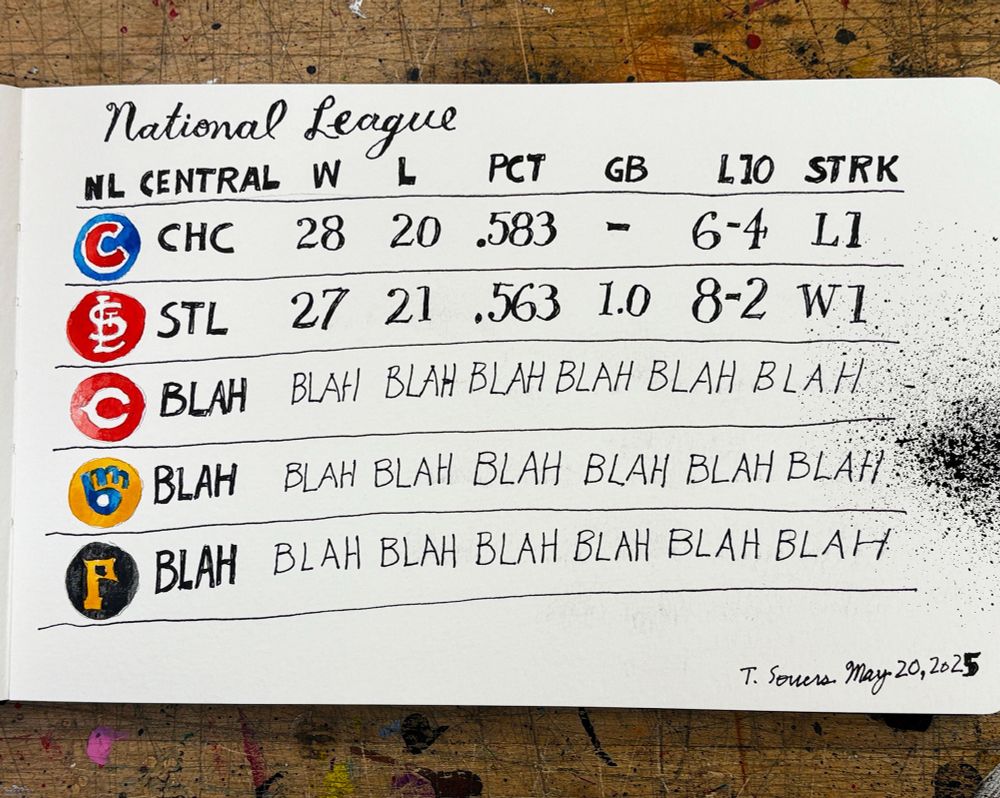 National League
NL CENTRAL W L PCT GB L10 STRK
C CHC 28 20 .583 - 6-4 L1
STL STL 27 21 .563 1.0 8-2 W1
C BLAH BLAH BLAH BLAH BLAH BLAH BLAH
mb BLAH BLAH BLAH BLAH BLAH BLAH BLAH
P BLAH BLAH BLAH BLAH BLAH BLAH BLAH
T. Souers May 20, 2025